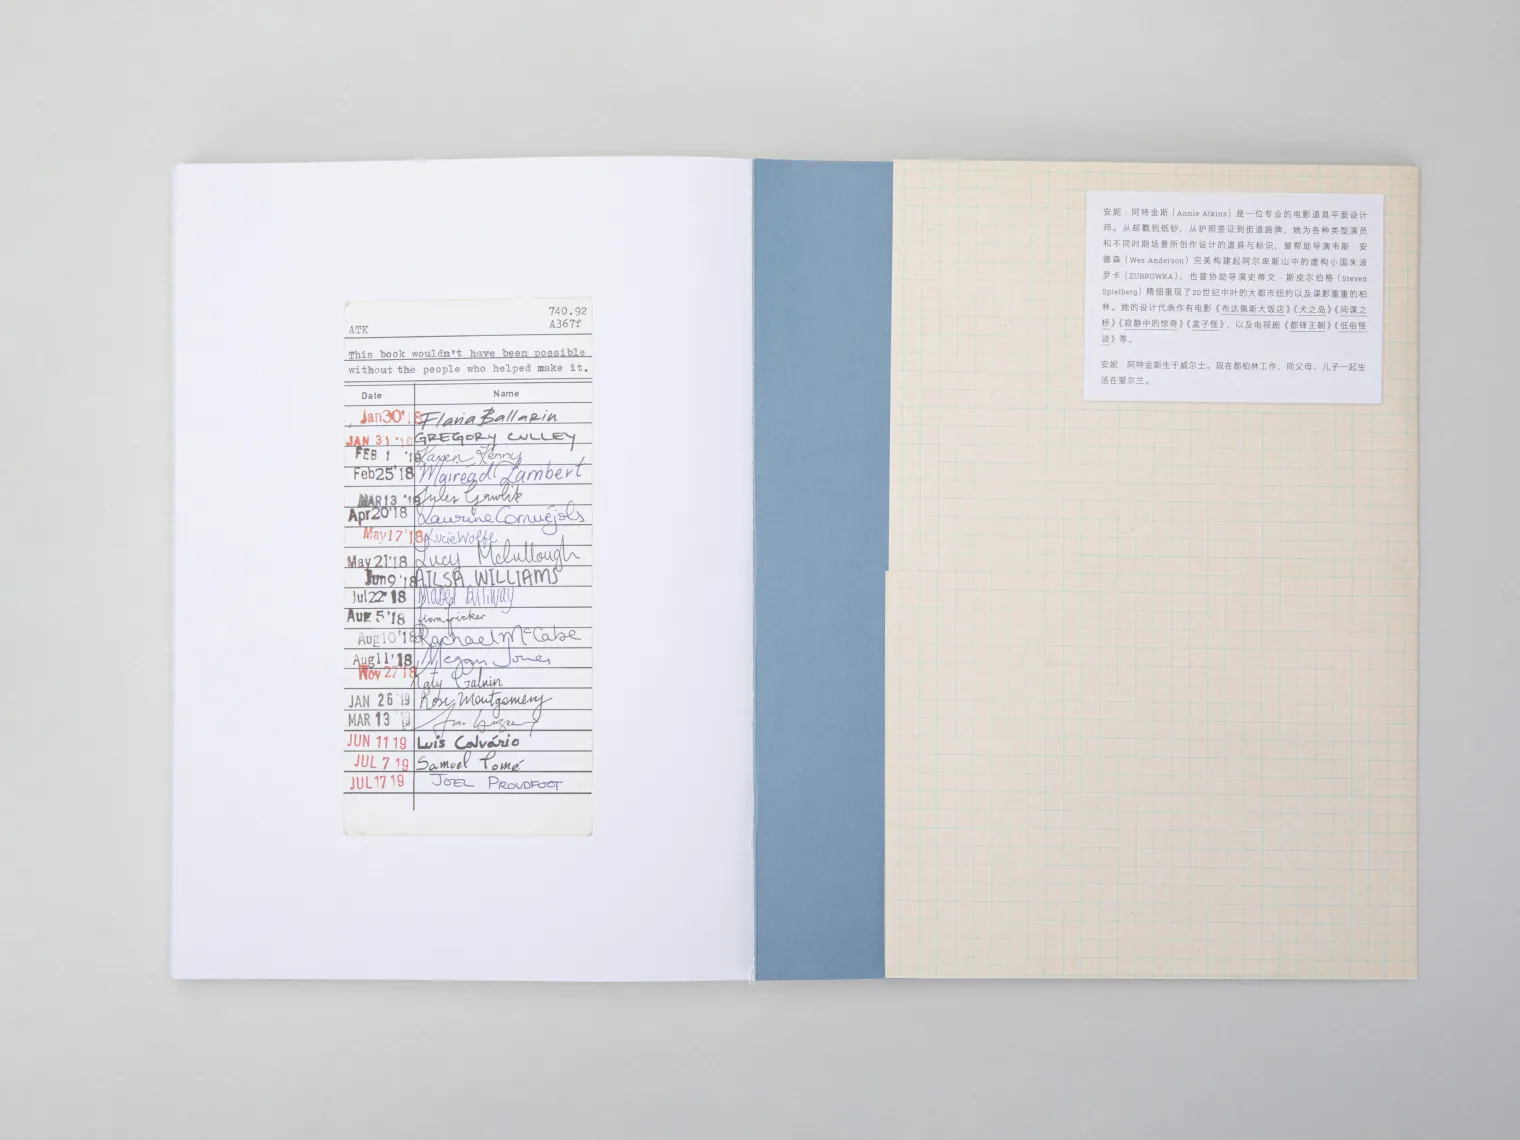 740.92
ATK A367f
This book wouldn't have been possible
without the people who helped make it.
Date Name
Jan30'18 Flavia Ballarin
JAN 31 '18 GREGORY CULLEY
FEB 1 '18 Karen Kenny
Feb25'18 Mairéad Lambert
MAR13 '18 Jyles Gawlik
Apr20'18 Laurine Cornuéjols
May17'18 Lucie Wolfe
May21'18 Lucy McCullough
Jun9 '18 AILSA WILLIAMS
Jul22'18
Aug 5'18 flora fricker
Aug10'18 Rachael McCabe
Aug11'18 Megan Jones
Nov27'18 Katy Galvin
JAN 26 '19 Rose Montgomery
MAR 13
JUN 11 19 Luis Calvário
JUL 7 19 Samuel Tomé
JUL 17 19 JOEL PROUDFOOT
安妮·阿特金斯（Annie Atkins）是一位专业的电影道具平面设计
师。从邮戳到纸钞，从护照签证到街道路牌，她为各种类型演员
和不同时期场景所创作设计的道具与标识，曾帮助导演韦斯·安
德森（Wes Anderson）完美构建起阿尔卑斯山中的虚构小国朱波
罗卡（ZUBROWKA），也曾协助导演史蒂文·斯皮尔伯格（Steven
Spielberg）精细重现了20世纪中叶的大都市纽约以及谍影重重的柏
林。她的设计代表作有电影《布达佩斯大饭店》《犬之岛》《间谍之
桥》《寂静中的惊奇》《盒子怪》，以及电视剧《都铎王朝》《低俗怪
谈》等。
安妮·阿特金斯生于威尔士。现在都柏林工作，同父母、儿子一起生
活在爱尔兰。